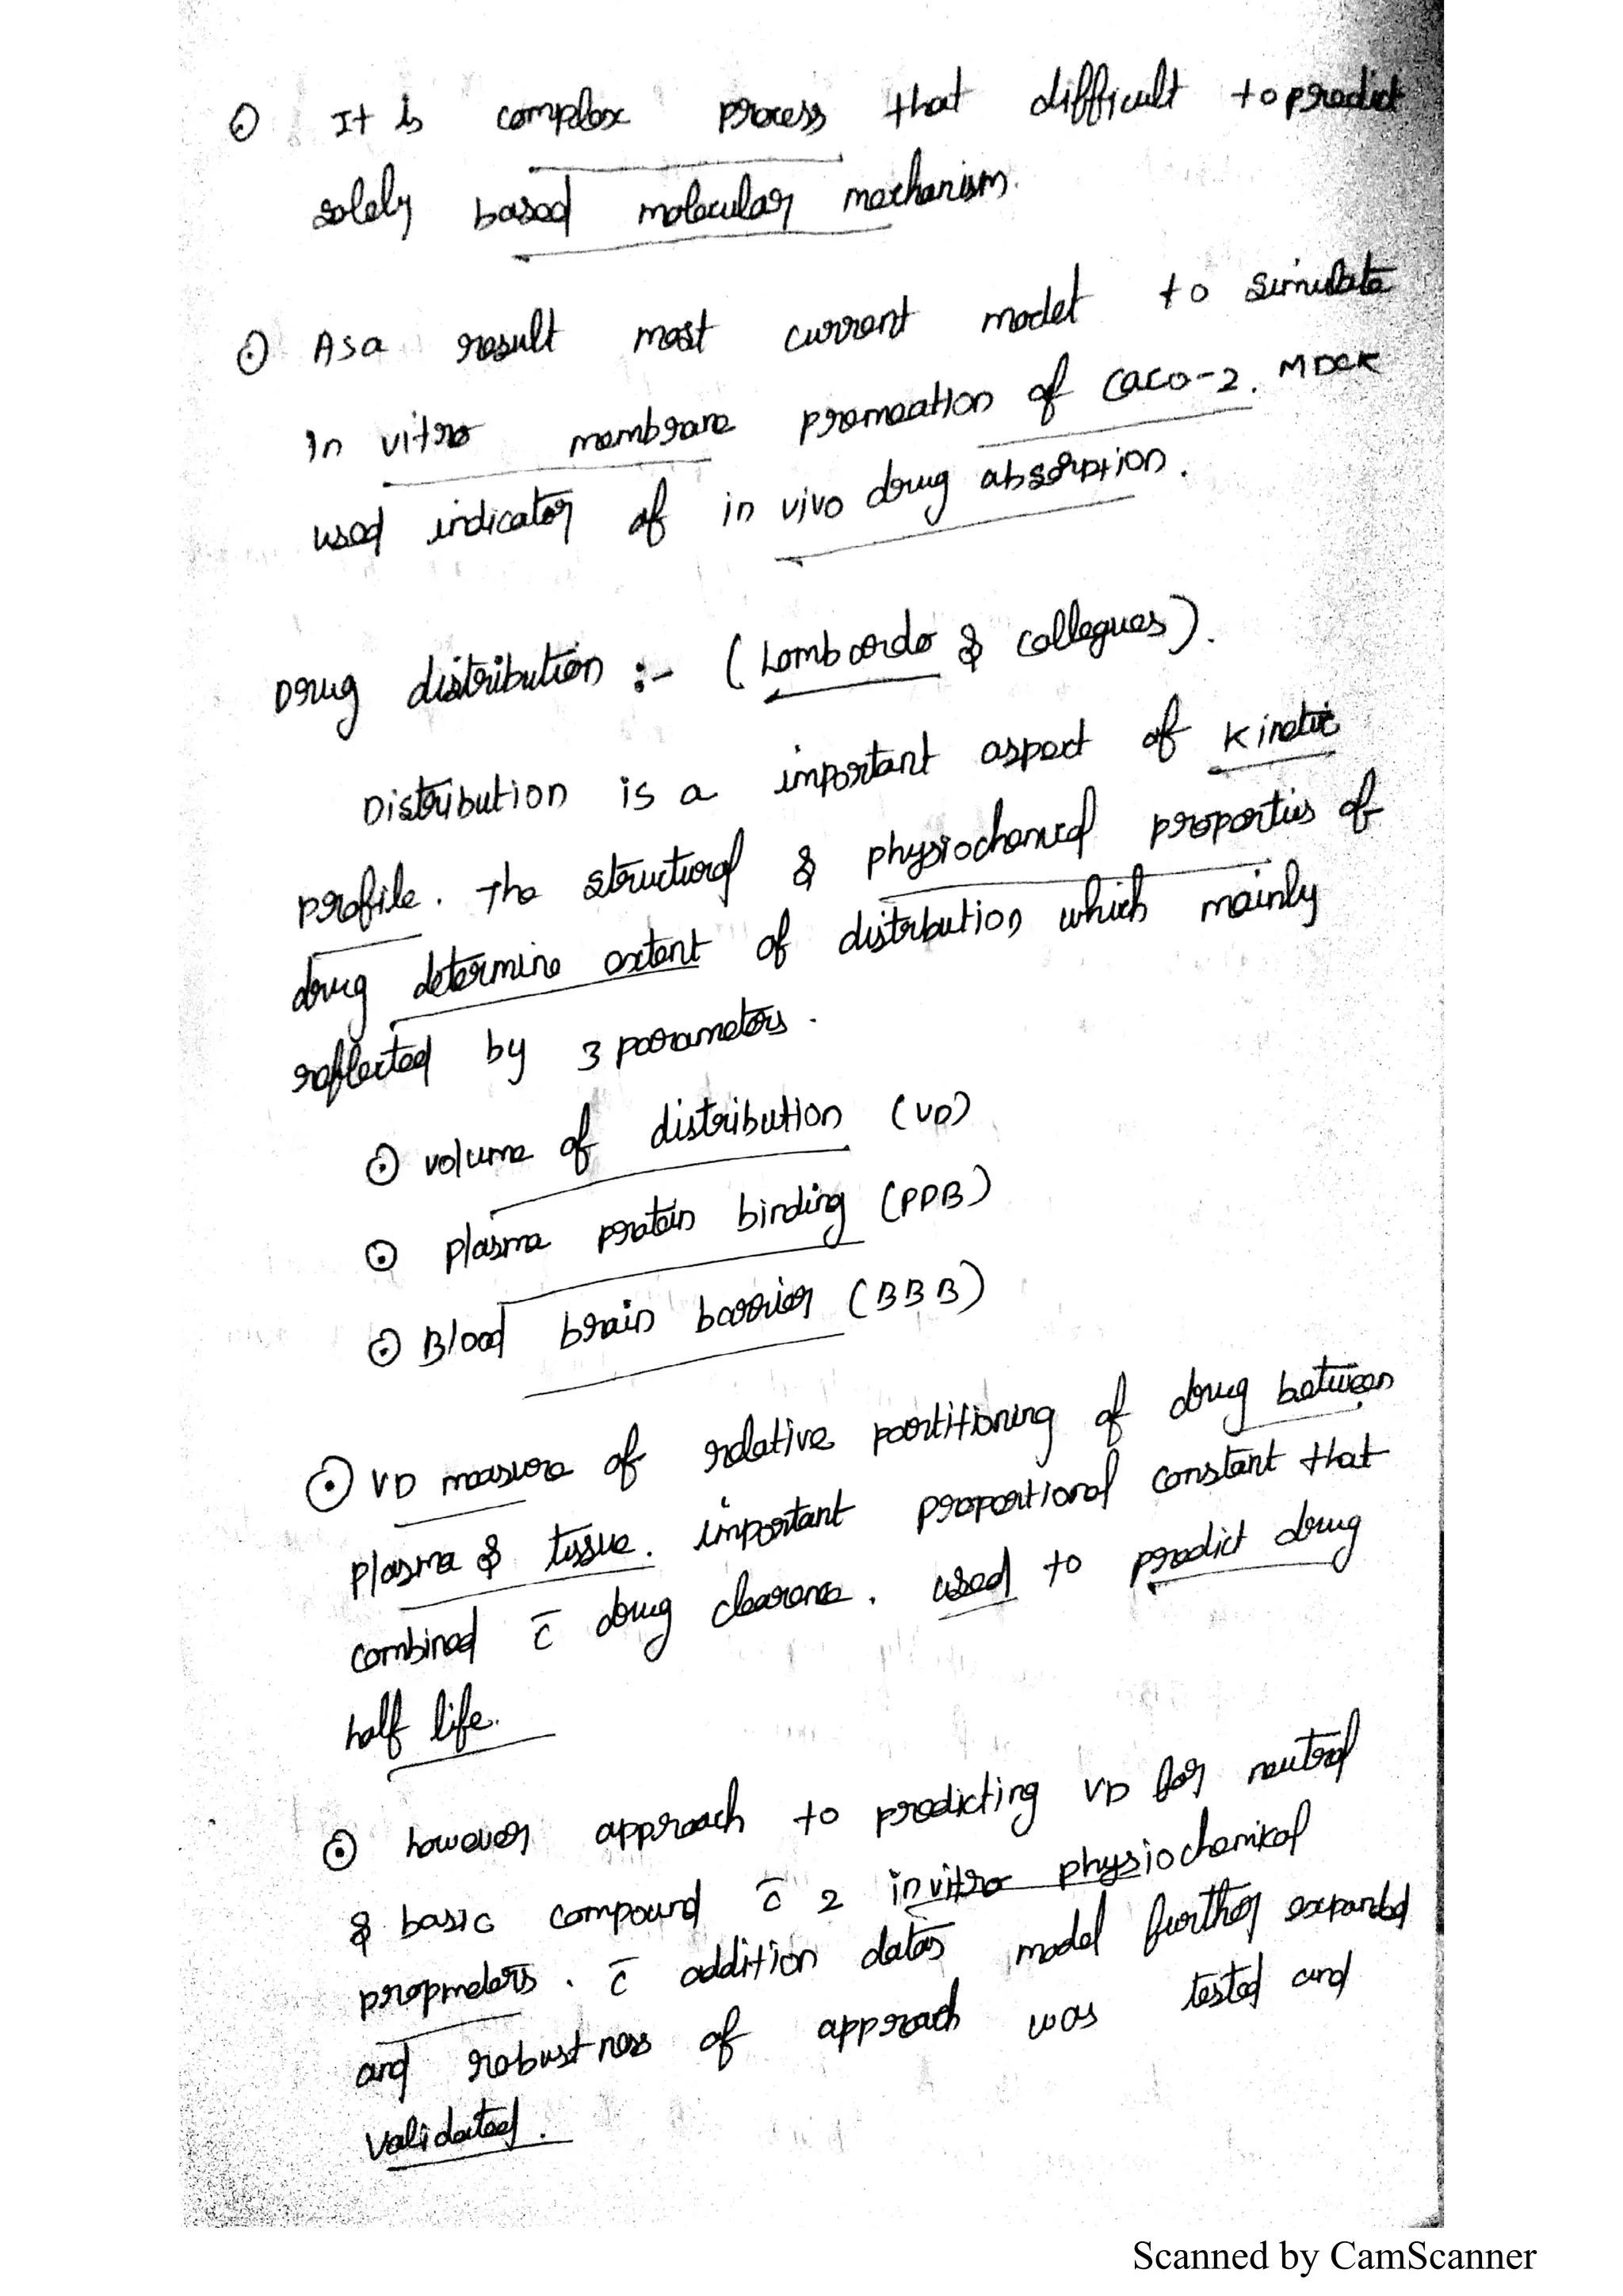 ⊙ It is complex process that difficult to predict
solely based molecular mechanism.
⊙ As a result most current model to simulate
in vitro membrane premeation of Caco-2. MDCK
used indicator of in vivo drug absorption.
Drug distribution :- (Lombardo & collegues).
Distribution is a important aspect of kinetic
profile. The structural & physiochemical properties of
drug determine extent of distribution which mainly
reflected by 3 parameters.
⊙ volume of distribution (VD)
⊙ plasma protein binding (PPB)
⊙ Blood brain barrier (BBB)
⊙ VD measure of relative partitioning of drug between
plasma & tissue. important proportional constant that
combined c̄ drug clearance. used to predict drug
half life.
⊙ however approach to predicting VD for neutral
& basic compound c̄ 2 invitro physiochemical
propmeters. c̄ addition datas model further expanded
and robustness of approach was tested and
validated.
Scanned by CamScanner